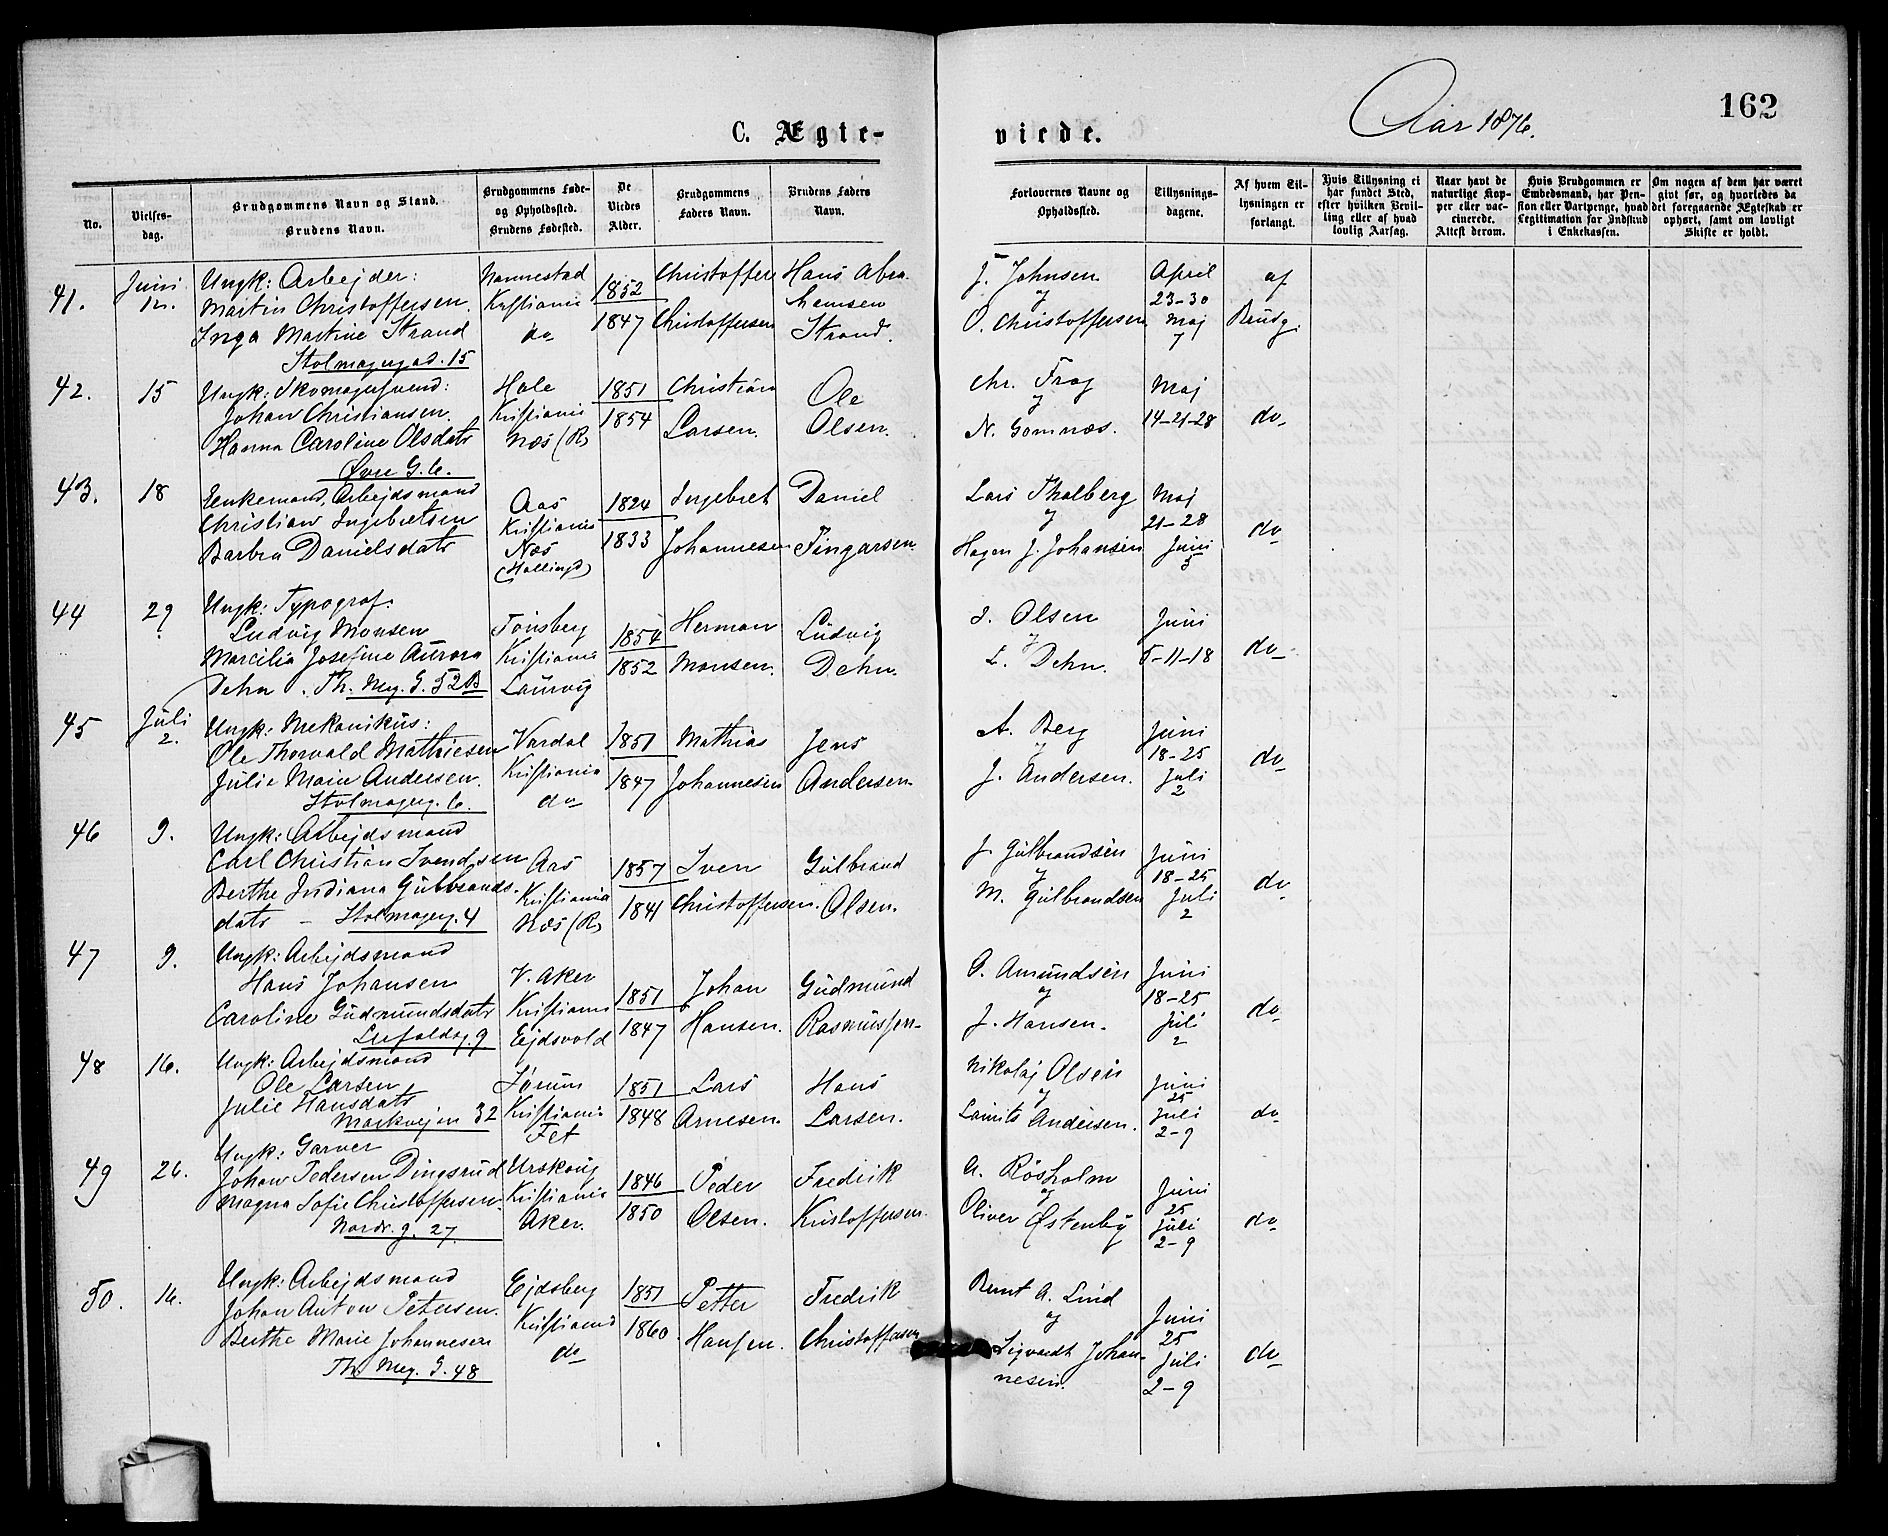 C. Ægte-
viede.
Aar 1876.
162
No.
Vielses-
dag.
Brudgommens Navn og Stand.
Brudens Navn.
Brudgommens Føde-
og Opholdssted.
Brudens Fødested.
De
Viedes
Alder.
Brudgommens
Faders Navn.
Brudens Faders
Navn.
Forlovernes Navne og
Opholdssted.
Tillysnings-
dagene.
Af hvem Til-
lysningen er
forlangt.
Hvis Tillysning ei
har fundet Sted,
efter hvilken Bevil-
ling eller af hvad
lovlig Aarsag.
Naar havt de
naturlige Kop-
per eller vac-
cinerede.
Attest derom.
Hvis Brudgommen er
Embedsmand, har Pen-
sion eller Vartpenge, hvad
Legitimation for Indskud
i Enkekassen.
Om nogen af dem har været
givt før, og hvorledes da
det foregaaende Ægteskab er
ophørt, samt om lovligt
Skifte er holdt.
41.
Juni
12.
Ungk: Arbejder:
Martin Christoffersen.
Inga Martine Strand
Stolmagergad. 15
Nannestad
Kristiania
do
1852
1847
Christoffer
Christoffersen
Hans Abra
hamsen
Strand.
J. Johnsen
og
O. Christoffersen
April
23-30
Maj
7
af
Brudg.
42.
15
Ungk: Skomagersvend:
Johan Christiansen.
Hanna Caroline Olsdatr
Øvre G. 6.
Hole
Kristiania
Næs (R)
1851
1854
Christian
Larsen.
Ole
Olsen.
Chr. Frog
og
N. Gomnæs.
Maj
14-21-28
do
43.
18
Enkemand, Arbejdsmand
Christian Ingebretsen
Barbra Danielsdatr
Aas
Kristiania
Næs
(Hallingd)
1824
1833
Ingebret
Johannesen
Daniel
Tingarsen.
Lars Thalberg
og
Hagen J. Johansen
Maj
21-28
Juni
do
44
29
Ungk: Typograf.
Ludvig Monsen
Marcilia Josefine Aurora
Dehn. Th. Mey. G. 52B
Tönsberg
Kristiania
Laurvig
1854
1852
Herman
Monsen.
Ludvig
Dehn.
Olsen
og
L. Dehn.
Juni
-11-18
do
45
Juli
2.
Ungk: Mekanikus:
Ole Thorvald Mathiesen
Julie Marie Andersen.
Stolmagerg. 6.
Vardal
Kristiania
do
1851
1847
Mathias
Johannesen
Jens
Andersen
A. Berg
og
J. Andersen.
Juni
18-25
Juli
2
do
46
9.
Ungk: Arbejdsmand
Carl Christian Svendsen
Berthe Indiana Gulbrands-
datr - Stolmagerg. 4
Aas
Kristiania
Næs (R)
1857
1841
Sven
Christoffersen.
Gulbrand
Olsen.
J. Gulbrandsen
og
M. Gulbrandsen
Juni
18-25
Juli
2
do
47
9.
Ungk: Arbejdsmand
Hans Johansen
Caroline Gudmundsdatr
9
V. Aker
Kristiania
Ejdsvold
1851
1847
Johan
Hansen.
Gudmund
Rasmussen
A. Amundsen
og
J. Hansen.
Juni
18-25
Juli
2
do
48
16.
Ungk: Arbejdsmand
Ole Larsen
Julie Hansdatr
Markvejen 32
Sørum
Kristiania
Fet
1851
1848
Lars
Arnesen.
Hans
Larsen.
Nikolaj Olsen
og
Laurits Andersen.
Juni
25
Juli
2-9
do
49
26.
Ungk: Garver
Johan Pedersen Dingsrud
Magna Sofie Christoffersen.
Nordr. g. 27.
Urskoug
Kristiania
Aker.
1846
1850
Peder
Olsen.
Fredrik
Kristoffersen.
A. Røsholm
og
Oliver Østenby
Juni
25
Juli
2-9
do
50.
16.
Ungk: Arbejdsmand
Johan Anton Petersen.
Berthe Marie Johannesen
Th. Mey. G. 48
Ejdsberg
Kristiania
do
1851
1860.
Petter
Hansen.
Fredrik
Christoffersen
Bernt A. Lind
og
Sigvardt Johan-
nesen.
Juni
25
Juli
2-9
do